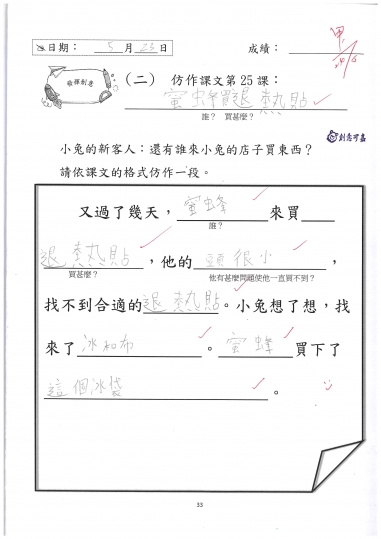 日期：5月23日 成績：甲
發揮創意
（二） 仿作課文第25課：
蜜蜂買退熱貼
誰？ 買甚麼？
創意可嘉
小兔的新客人：還有誰來小兔的店子買東西？
請依課文的格式仿作一段。
又過了幾天，蜜蜂來買
誰？
退熱貼，他的頭很小，
買甚麼？ 他有甚麼問題使他一直買不到？
找不到合適的退熱貼。小兔想了想，找
來了冰和布。蜜蜂買下了
這個冰袋。
33